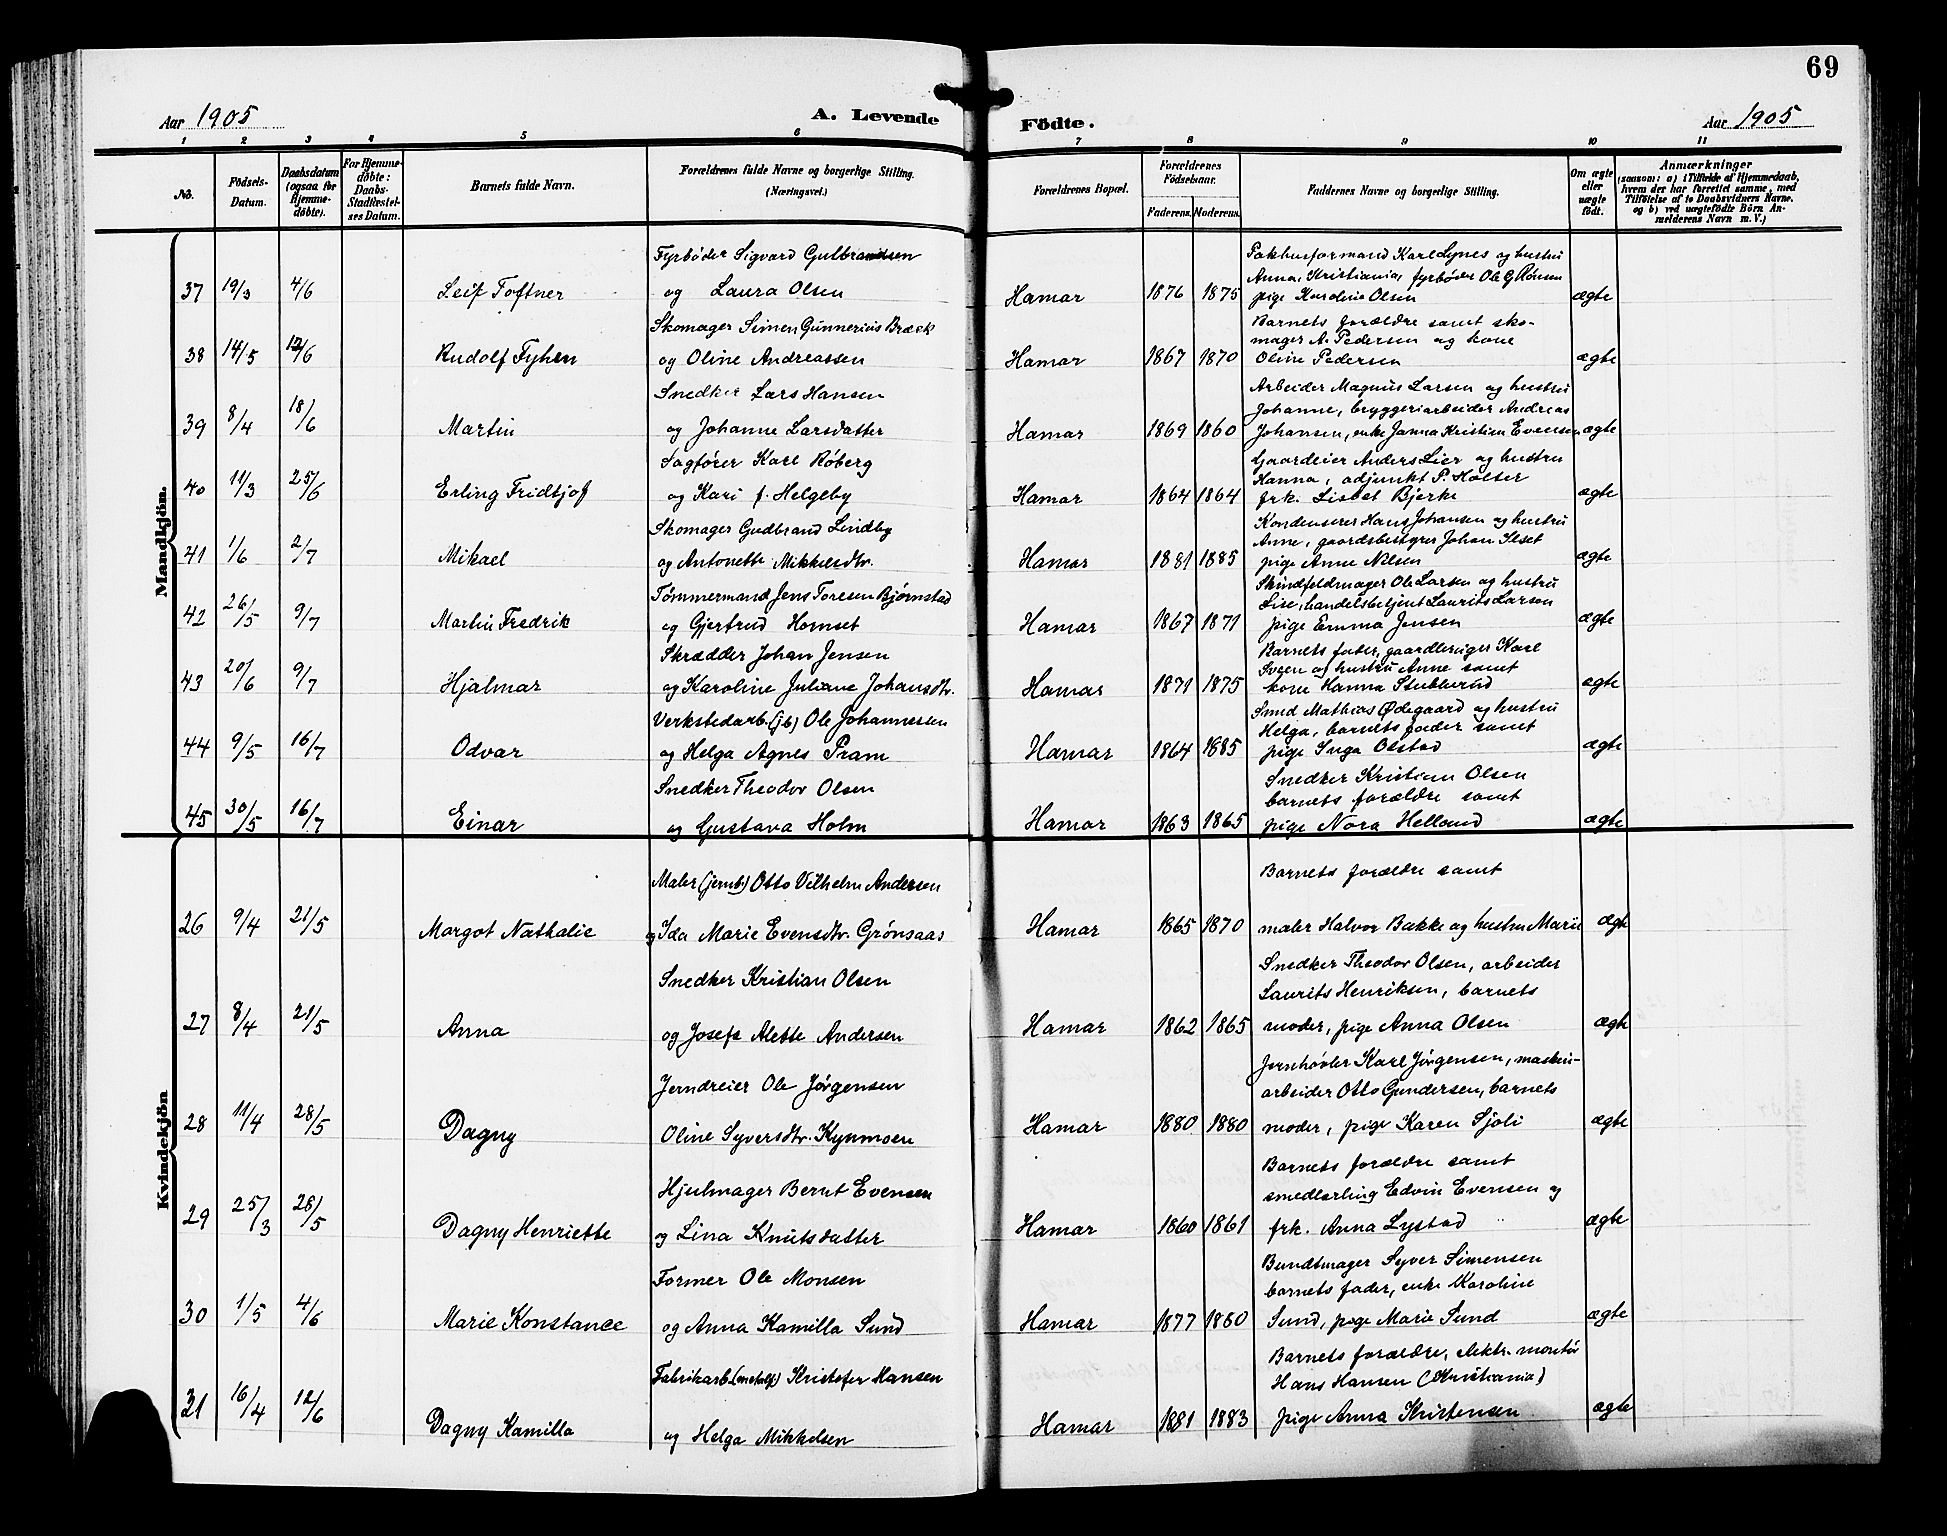 69
Aar 1905
A. Levende Födte.
Aar 1905
1 2 3 4 5 6 7 8 9 10 11
No.
Födsels-Datum.
Daabsdatum (ogsaa for Hjemmedöbte).
For Hjemmedöbte: Daabs-Stadfæstelses Datum.
Barnets fulde Navn.
Forældrenes fulde Navne og borgerlige Stilling. (Næringsvei.)
Forældrenes Bopæl.
Forældrenes Födselsaar.
Faderens. Moderens.
Faddernes Navne og borgerlige Stilling.
Om ægte eller uægte födt.
Anmærkninger
(saasom: a) i Tilfælde af Hjemmedaab, hvem der har forrettet samme, med Tilföielse af to Daabsvidners Navne. og b) ved uægtefödte Börn Anmelderens Navn m. V.)
Mandkjön.
Fyrbøder Sigvard Gulbrandsen
Pakhusformand Karl Lynes og hustru
Anna, Kristiania, fyrbøder Ole G. Rønsen
37 19/3 4/6 Leif Toftner og Laura Olsen Hamar 1876 1875 pige Karoline Olsen ægte
Skomager Simen Gunnerius Bræck
Barnets forældre samt sko-
mager A. Pedersen og kone
38 14/5 12/6 Rudolf Fyhen og Oline Andreassen Hamar 1867 1870 Oline Pedersen ægte
Snedker Lars Hansen
Arbeider Magnus Larsen og hustru
Johanne, bryggeriarbeider Andreas
39 8/4 18/6 Martin og Johanne Larsdatter Hamar 1869 1860 Johansen, enke Janna Kristian Evensen ægte
Sagfører Karl Røberg
Gaardeier Anders Lier og hustru
Hanna, adjunkt P. Holter
40 11/3 25/6 Erling Fridtjof og Kari f. Helgeby Hamar 1864 1864 frk. Lisbet Bjerke ægte
Skomager Gudbrand Lindby
Kondenserer Hans Johansen og hustru
Anne, gaardsbestyrer Johan Slset
41 1/6 2/7 Mikael og Antonette Mikkelsdtr. Hamar 1881 1885 pige Anne Nilsen ægte
Tømmermand Jens Toresen Bjørnstad
Skindfeldmager Ole Larsen og hustru
Lise, handelsbetjent Laurits Larson
42 26/5 9/7 Martin Fredrik og Gjertrud Hornset Hamar 1867 1871 pige Emma Jensen ægte
Skrædder Johan Jensen
Barnets fader, gaardbruger Karl
Sveen og hustru Anne samt
43 20/6 9/7 Hjalmar og Karoline Juliane Johansdtr. Hamar 1871 1875 kone Hanna Stublerud ægte
Verkstedarb. (jb) Ole Johannessen
Smed Mathias Ødegaard og hustru
Helga, barnets fader samt
44 9/5 16/7 Odvar og Helga Agnes Pram Hamar 1864 1885 pige Inga Olstad ægte
Snedker Theodor Olsen
Snedker Kristian Olsen
barnets forældre samt
45 30/5 16/7 Einar og Gustava Holm Hamar 1863 1865 pige Nora Helland ægte
Kvindekjön
Maler (jernb.) Otto Vilhelm Andersen
Barnets forældre samt
26 9/4 21/5 Margot Nathalie og Ida Marie Evensdtr. Grønsaas Hamar 1865 1870 maler Halvor Bakke og hustru Marie ægte
Snedker Kristian Olsen
Snedker Theodor Olsen, arbeider
Laurits Henriksen, barnets
27 8/4 21/5 Anna og Josefe Alette Andersen Hamar 1862 1865 moder, pige Anna Olsen ægte
Jerndreier Ole Jørgensen
Jernhøvler Karl Jørgensen, maskin-
arbeider Otto Gundersen, barnets
28 11/4 28/5 Dagny Oline Syversdtr. Kynmoen Hamar 1880 1880 moder, pige Karen Sjøli ægte
Hjulmager Bernt Evensen
Barnets forældre samt
smedlærling Edvin Evensen og
29 25/3 28/5 Dagny Henriette og Lina Knutsdatter Hamar 1860 1861 frk. Anna Lystad ægte
Former Ole Monsen
Bundtmager Syver Simensen
barnets fader, enke Karoline
30 1/5 4/6 Marie Konstance og Anna Kamilla Sund Hamar 1877 1880 Sund, pige Marie Sund ægte
Fabrikarb. (metalf) Kristofer Hansen
Barnets forældre, elektr. montør
Hans Hansen (Kristiania)
31 16/4 12/6 Dagny Kamilla og Helga Mikkelsen Hamar 1881 1883 pige Anna Kristensen ægte